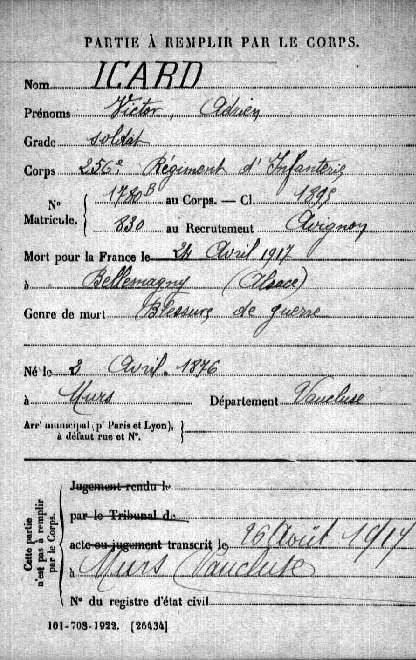 PARTIE À REMPLIR PAR LE CORPS.
Nom ICARD
Prénoms Victor, Adrien
Grade soldat
Corps 256e Régiment d'Infanterie
N° Matricule. { 1780B au Corps. — Cl. 1896
830 au Recrutement Avignon
Mort pour la France le 24 Avril 1917
à Bellemagny (Alsace)
Genre de mort Blessures de guerre
Né le 2 Avril 1876
à Murs Département Vaucluse
Arrt municipal (pr Paris et Lyon), à défaut rue et N°. }
Cette partie n'est pas à remplir par le Corps.
Jugement rendu le
par le Tribunal de
acte ou jugement transcrit le 26 Août 1917
à Murs Vaucluse
N° du registre d'état civil
101-708-1922. [26434]